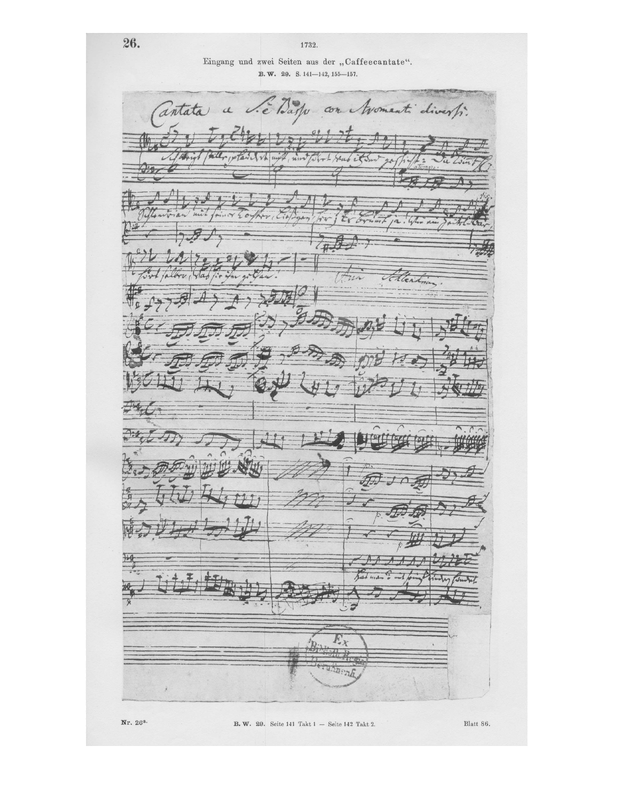 26.
1732.
Eingang und zwei Seiten aus der „Caffeecantate“.
B. W. 29. S. 141—142, 155—157.
Cantata a Basso con diversi.
stille, plaudert nicht, und hört was geschicht: Da
Schlendrian mit seiner Tochter her; Er brumt ja wie ein
hört selber, was sie ihm gethan.
Hat man mit seinen Kindern
Ex
Biblioth. Regia
Berolinensi.
Nr. 26a. B. W. 29. Seite 141 Takt 1 — Seite 142 Takt 2. Blatt 86.